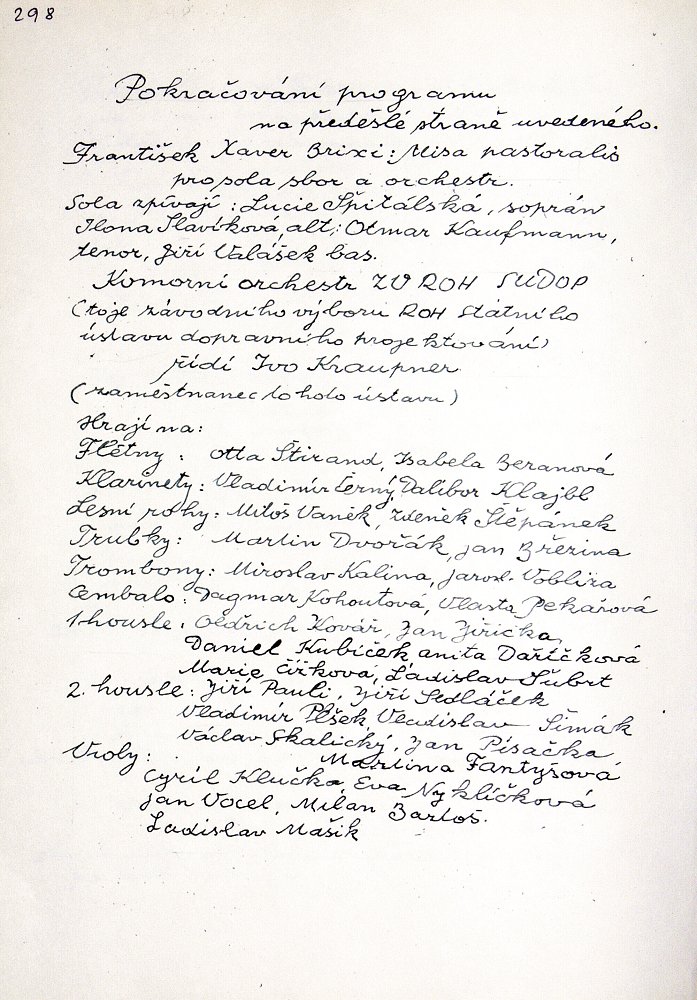 298
Pokračování programu
na předešlé straně uvedeného.
František Xaver Brixi: Misa pastoralis
pro sola sbor a orchestr.
Sola zpívají: Lucie Špitálská, soprán
Ilona Slavíková, alt,: Otmar Kaufmann,
tenor, Jiří Valášek bas.
Komorní orchestr ZV ROH SUDOP
(to je závodního výboru ROH Státního
ústavu dopravního projektování)
řídí Ivo Kraupner
(zaměstnanec tohoto ústavu)
Hrají na:
Flétny: Otta Štirand, Isabela Beranová
Klarinety: Vladimír Černý, Dalibor Klajbl
Lesní rohy: Miloš Vaněk, Zdeněk Štěpánek
Trubky: Martin Dvořák, Jan Březina
Trombony: Miroslav Kalina, Jarosl. Vobliza
Cembalo: Dagmar Kohoutová, Vlasta Pekařová
1 housle: Oldřich Kovář, Jan Jiřička,
Daniel Kubíček, Anita Daříčková
Marie Čížková, Ladislav Šubrt
2. housle: Jiří Pauli, Jiří Sedláček
Vladimír Plšek Vladislav Šimák
Václav Skalický, Jan Písačka
Martina Fantyšová
Violy:
Cyril Klučka, Eva Nykličková
Jan Vocel, Milan Bartoš.
Ladislav Mašik